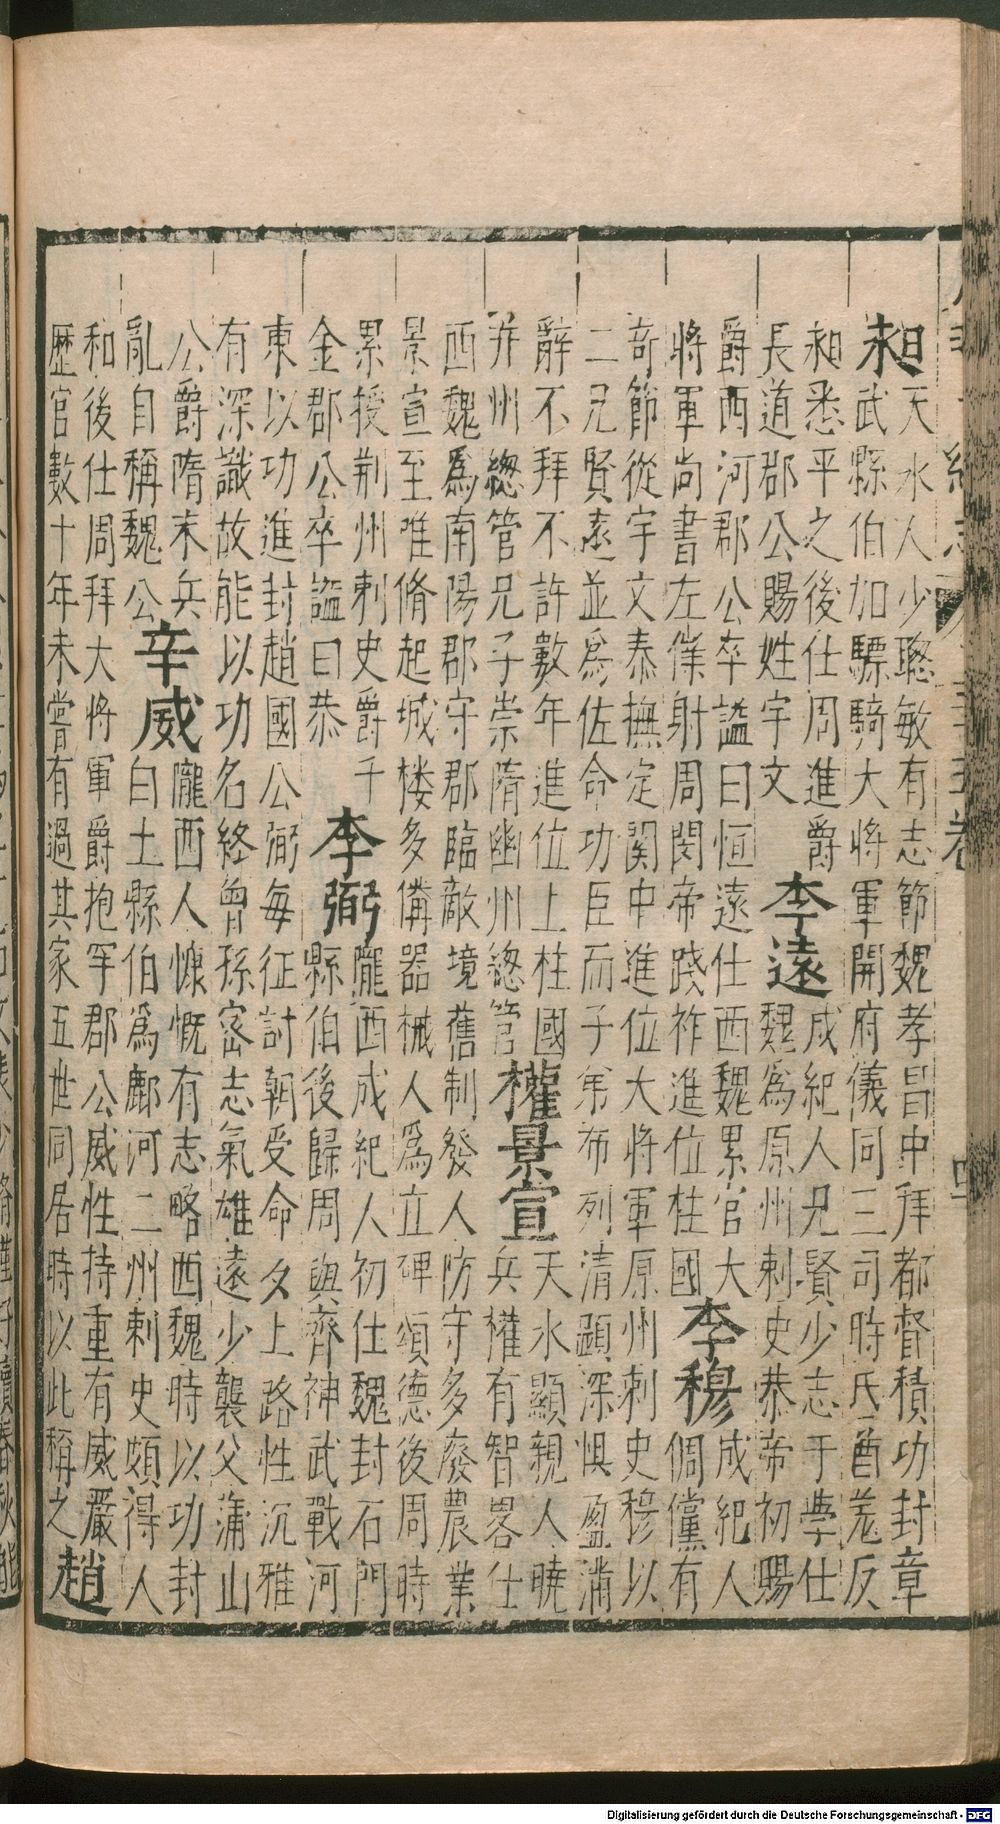 昶
天水人少聰敏有志節魏孝昌中拜都督積功封章
武縣伯加驃騎大將軍開府儀同三司時氐酋羌反
昶悉平之後仕周進爵
長道郡公賜姓宇文
李遠
成紀人兄賢少志于學仕
魏為原州刺史恭帝初賜
爵西河郡公卒諡曰恒遠仕西魏累官大
將軍尚書左僕射周閔帝踐祚進位柱國
李穆
成紀人
倜儻有
奇節從宇文泰撫定関中進位大將軍原州刺史穆以
二兄賢遠並為佐命功臣而子弟布列清顯深惧盈滿
辭不拜不許數年進位上柱國
并州總管兄子崇隋幽州總管
權景宣
天水顯親人曉
兵權有智畧仕
西魏為南陽郡守郡臨敵境舊制發人防守多廢農業
景宣至唯脩起城楼多備器械人為立碑頌德後周時
累授荊州刺史爵千
金郡公卒諡曰恭
李弼
隴西成紀人初仕魏封石門
縣伯後歸周與齊神武戰河
東以功進封趙國公弼每征討朝受命夕上路性沉雅
有深識故能以功名終曾孫密志氣雄遠少襲父蒲山
公爵隋末兵
亂自稱魏公
辛威
隴西人慷慨有志略西魏時以功封
白土縣伯為鄜河二州刺史頗得人
和後仕周拜大將軍爵抱罕郡公威性持重有威嚴
歷官數十年未嘗有過其家五世同居時以此稱之
趙
Digitalisierung gefördert durch die Deutsche Forschungsgemeinschaft - DFG